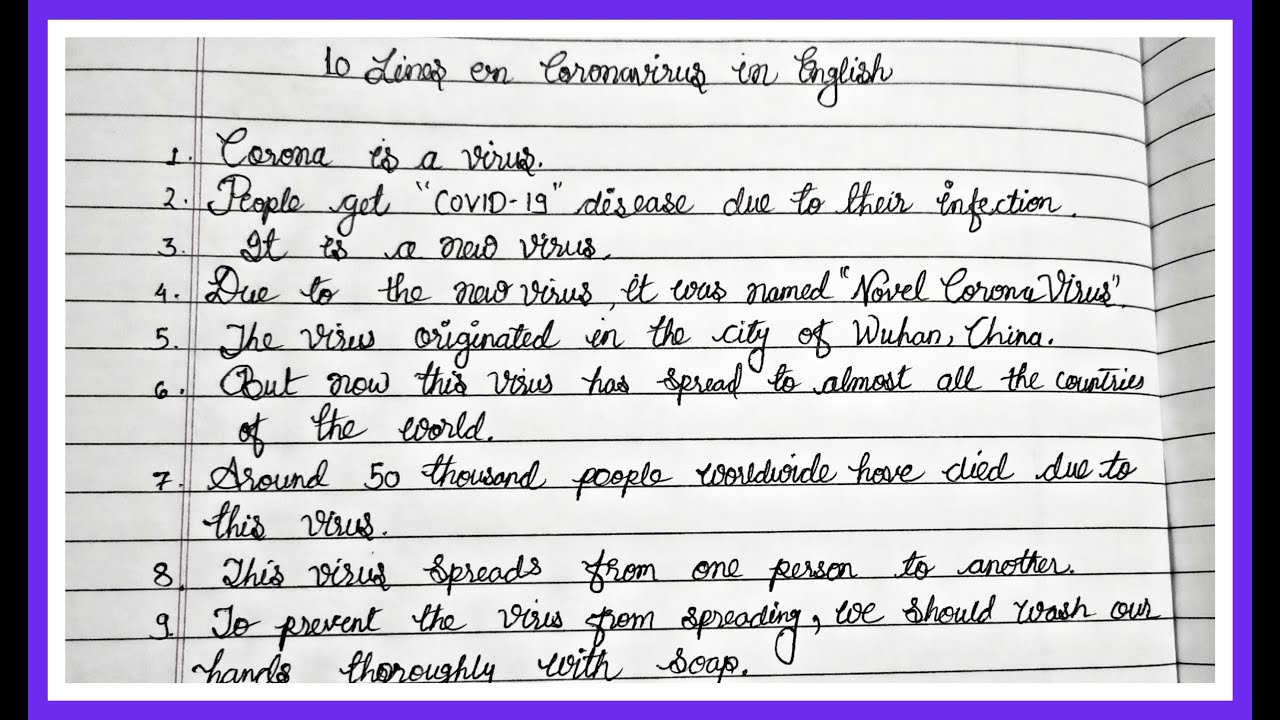 10 Lines on Coronavirus in English
1. Corona is a virus.
2. People get "COVID-19" disease due to their infection.
3. It is a new virus.
4. Due to the new virus, it was named "Novel Corona Virus".
5. The virus originated in the city of Wuhan, China.
6. But now this virus has spread to almost all the countries
of the world.
7. Around 50 thousand people worldwide have died due to
this virus.
8. This virus spreads from one person to another.
9. To prevent the virus from spreading, we should wash our
hands thoroughly with soap.